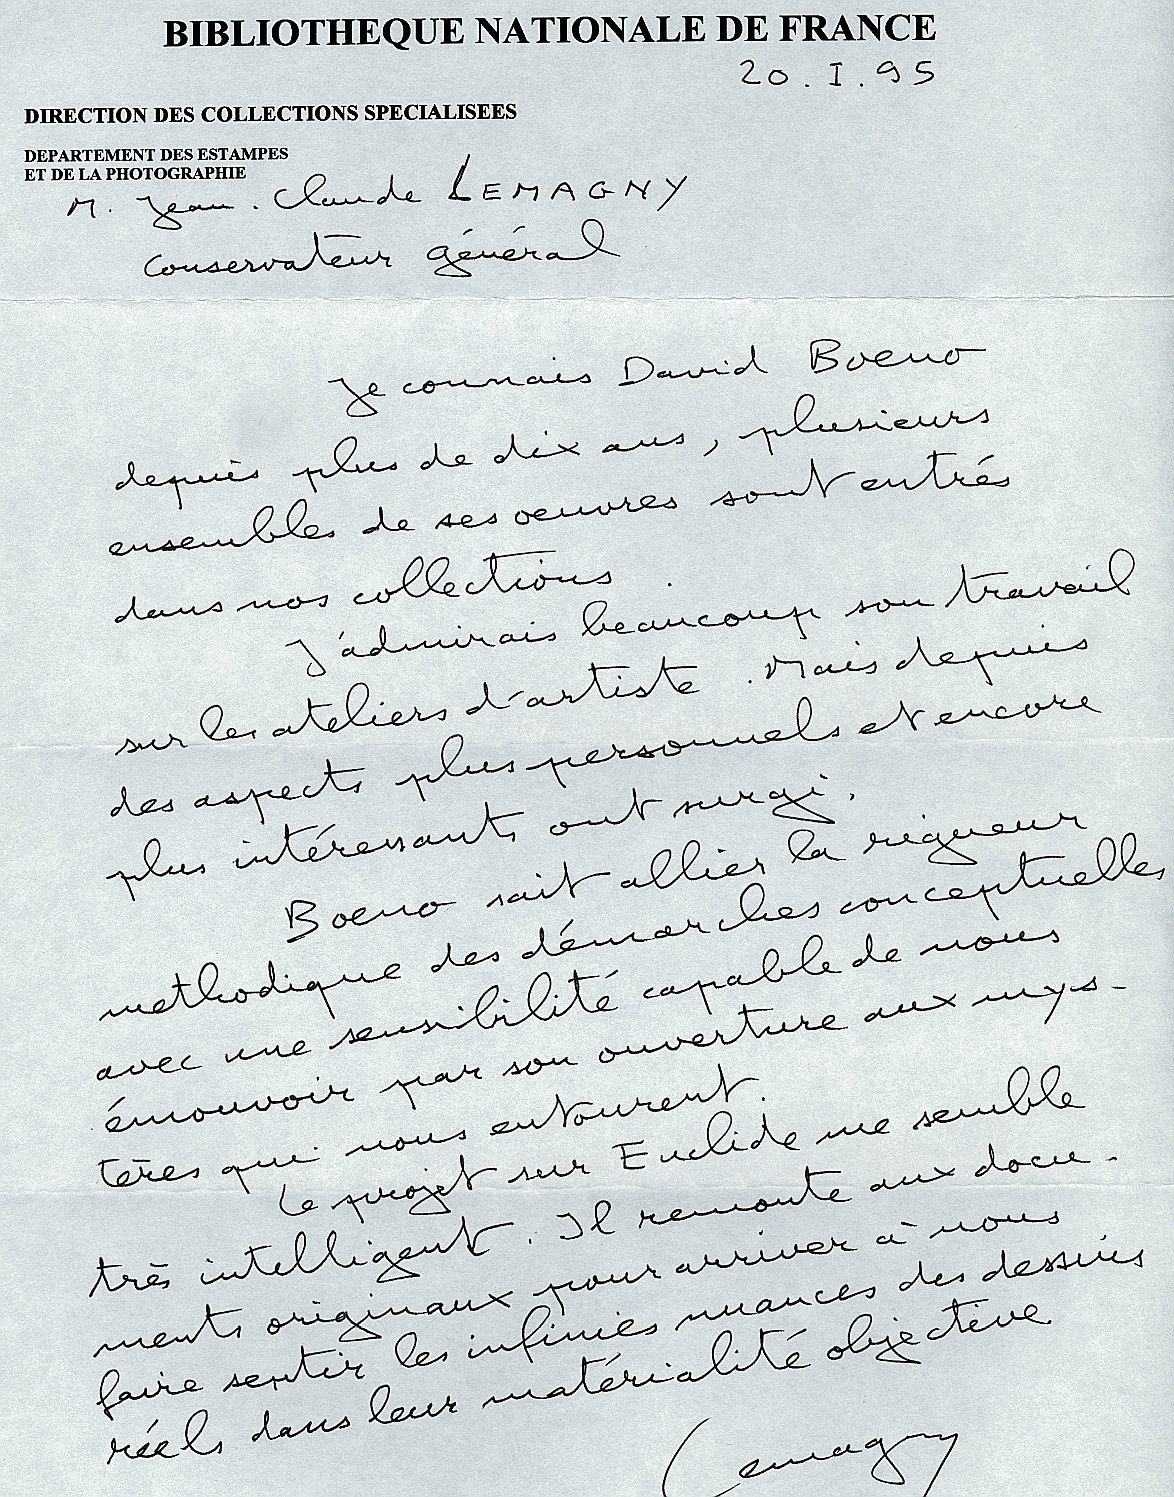 BIBLIOTHEQUE NATIONALE DE FRANCE
20.I.95
DIRECTION DES COLLECTIONS SPECIALISEES
DEPARTEMENT DES ESTAMPES
ET DE LA PHOTOGRAPHIE
M. Jean-Claude LEMAGNY
Conservateur général
Je connais David Boeno
depuis plus de dix ans, plusieurs
ensembles de ses oeuvres sont entrés
dans nos collections.
J'admirais beaucoup son travail
sur les ateliers d'artiste. Mais depuis
des aspects plus personnels et encore
plus intéressants ont surgi.
Boeno sait allier la rigueur
méthodique des démarches conceptuelles
avec une sensibilité capable de nous
émouvoir par son ouverture aux mys-
tères qui nous entourent.
Le projet sur Euclide me semble
très intelligent. Il remonte aux docu-
ments originaux pour arriver à nous
faire sentir les infinies nuances des dessins
réels dans leur matérialité objective
Lemagny